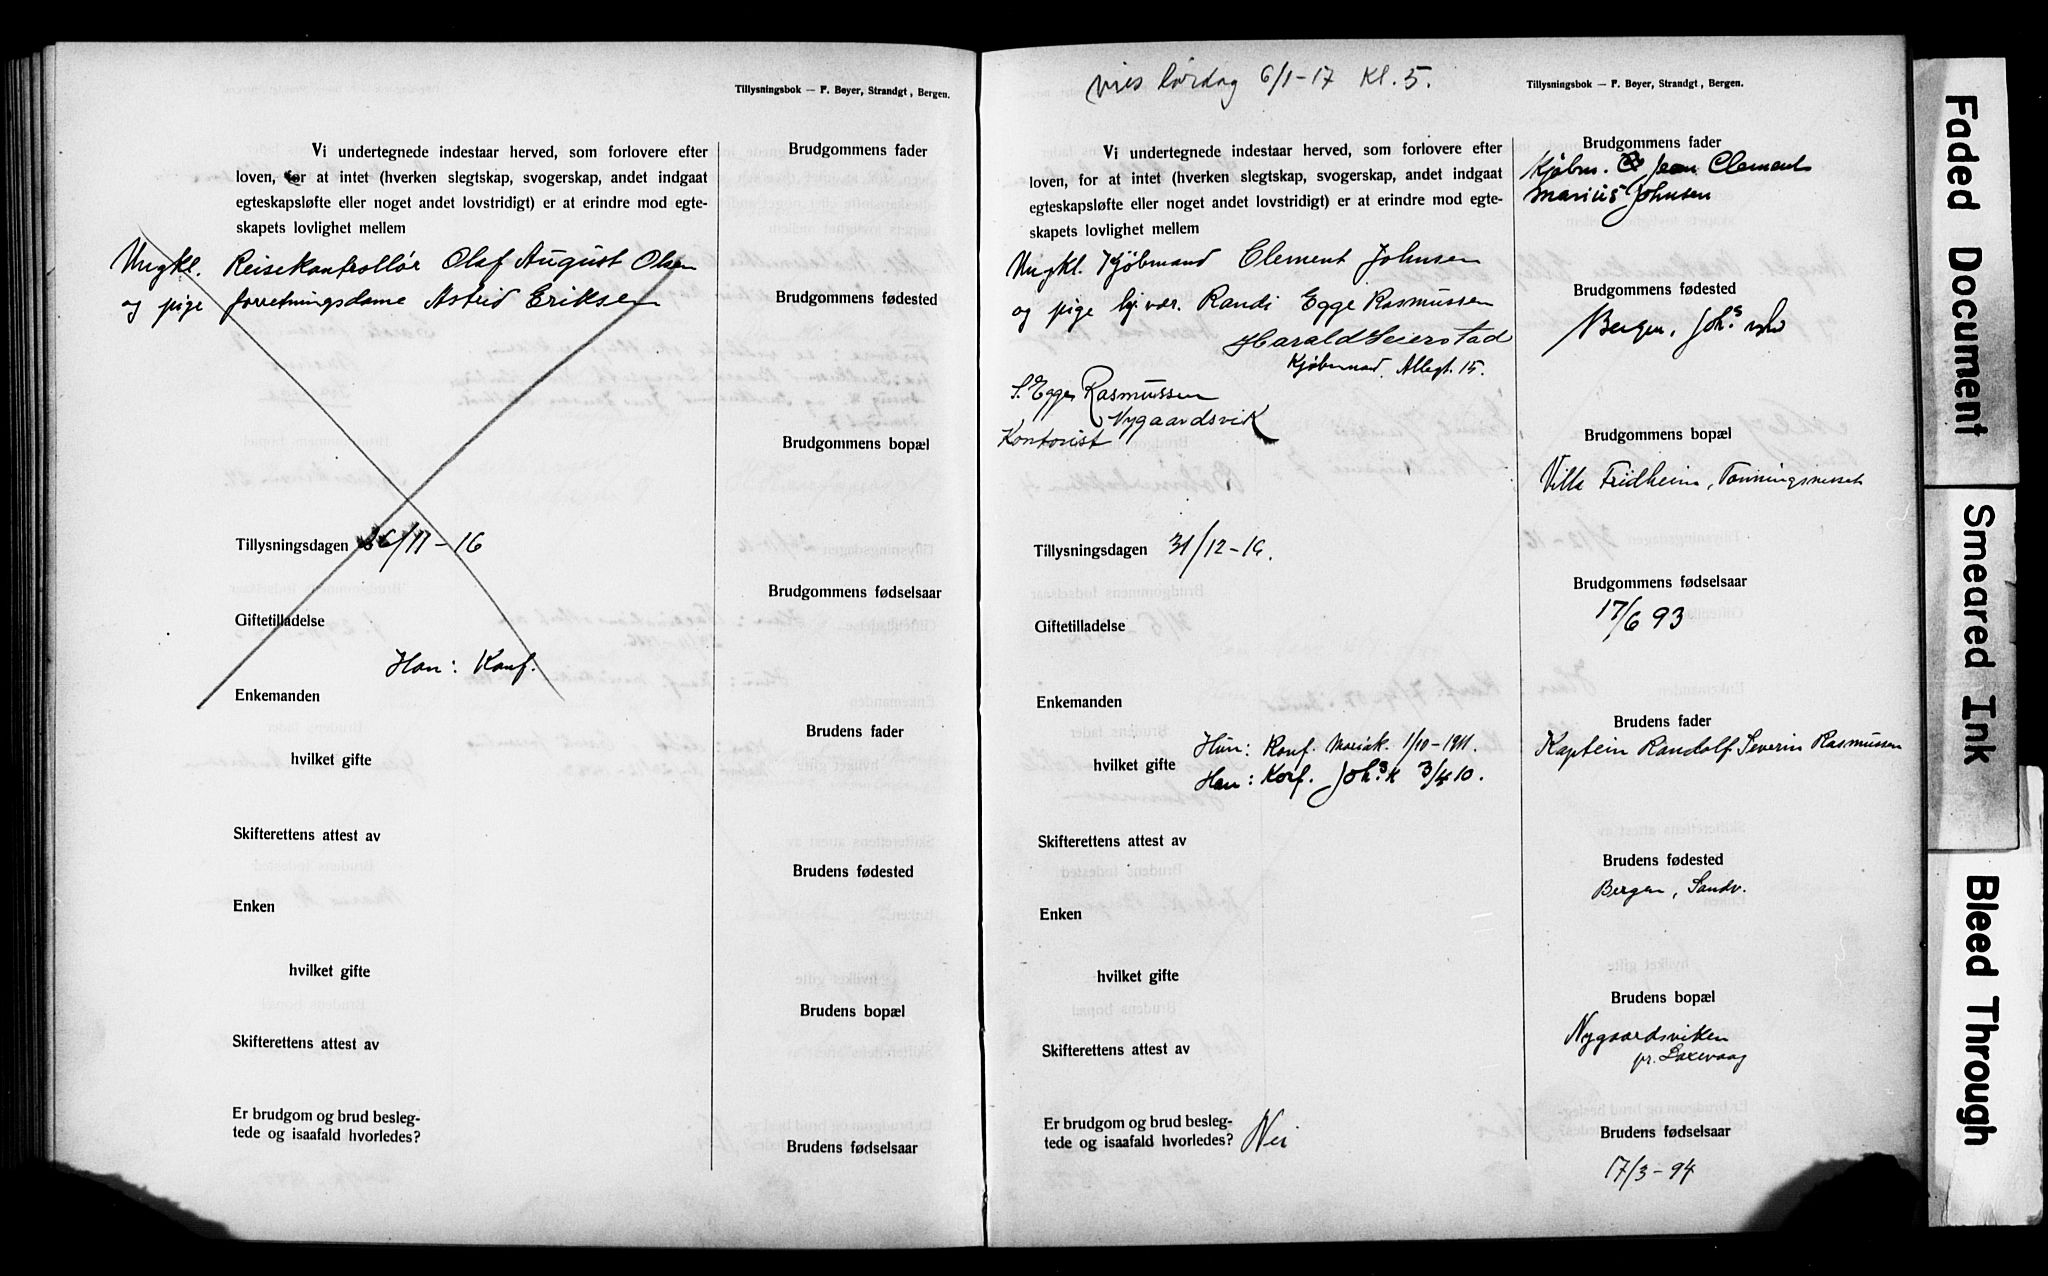 Tillysningsbok — F. Beyer, Strandgt, Bergen.
Vi undertegnede indestaar herved, som forlovere efter
loven, for at intet (hverken slegtskap, svogerskap, andet indgaat
egteskapsløfte eller noget andet lovstridigt) er at erindre mod egte-
skapets lovlighet mellem
Ungkl. Reisekontrollør Olaf August Olsen
og pige forretningsdame Astrid Eriksen
Tillysningsdagen 26/11-16
Giftetilladelse
Han: Konf.
Enkemanden
hvilket gifte
Skifterettens attest av
Enken
hvilket gifte
Skifterettens attest av
Er brudgom og brud besleg-
tede og isaafald hvorledes?
Brudgommens fader
Brudgommens fødested
Brudgommens bopæl
Brudgommens fødselsaar
Brudens fader
Brudens fødested
Brudens bopæl
Brudens fødselsaar
vies lørdag 6/1-17 Kl. 5.
Tillysningsbok — F. Beyer, Strandgt, Bergen.
Vi undertegnede indestaar herved, som forlovere efter
loven, for at intet (hverken slegtskap, svogerskap, andet indgaat
egteskapsløfte eller noget andet lovstridigt) er at erindre mod egte-
skapets lovlighet mellem
Ungkl. Kjøbmand Clement Johnsen
og pige Randi Egge Rasmussen
Harald Seierstad
Kjøbmand, Allegt. 15.
S. Egge Rasmussen
Nygaardsvik
Kontorist
Tillysningsdagen 31/12-16.
Giftetilladelse
Enkemanden
Hun: Konf. Mariak. 1/10-1911.
hvilket gifte
Han: Konf. Joh.s k 3/4 10.
Skifterettens attest av
Enken
hvilket gifte
Skifterettens attest av
Er brudgom og brud besleg-
tede og isaafald hvorledes? Nei
Brudgommens fader
Kjøbm. Jean Clement
Marius Johnsen
Brudgommens fødested
Bergen, Joh.s
Brudgommens bopæl
Villa Fridheim,
Brudgommens fødselsaar
17/6 93
Brudens fader
Kaptein Randolf Severin Rasmussen
Brudens fødested
Bergen, Sandv.
Brudens bopæl
Nygaardsviken
pr. Laxevaag
Brudens fødselsaar
17/3-94
Faded Document
Smeared Ink
Bleed Through